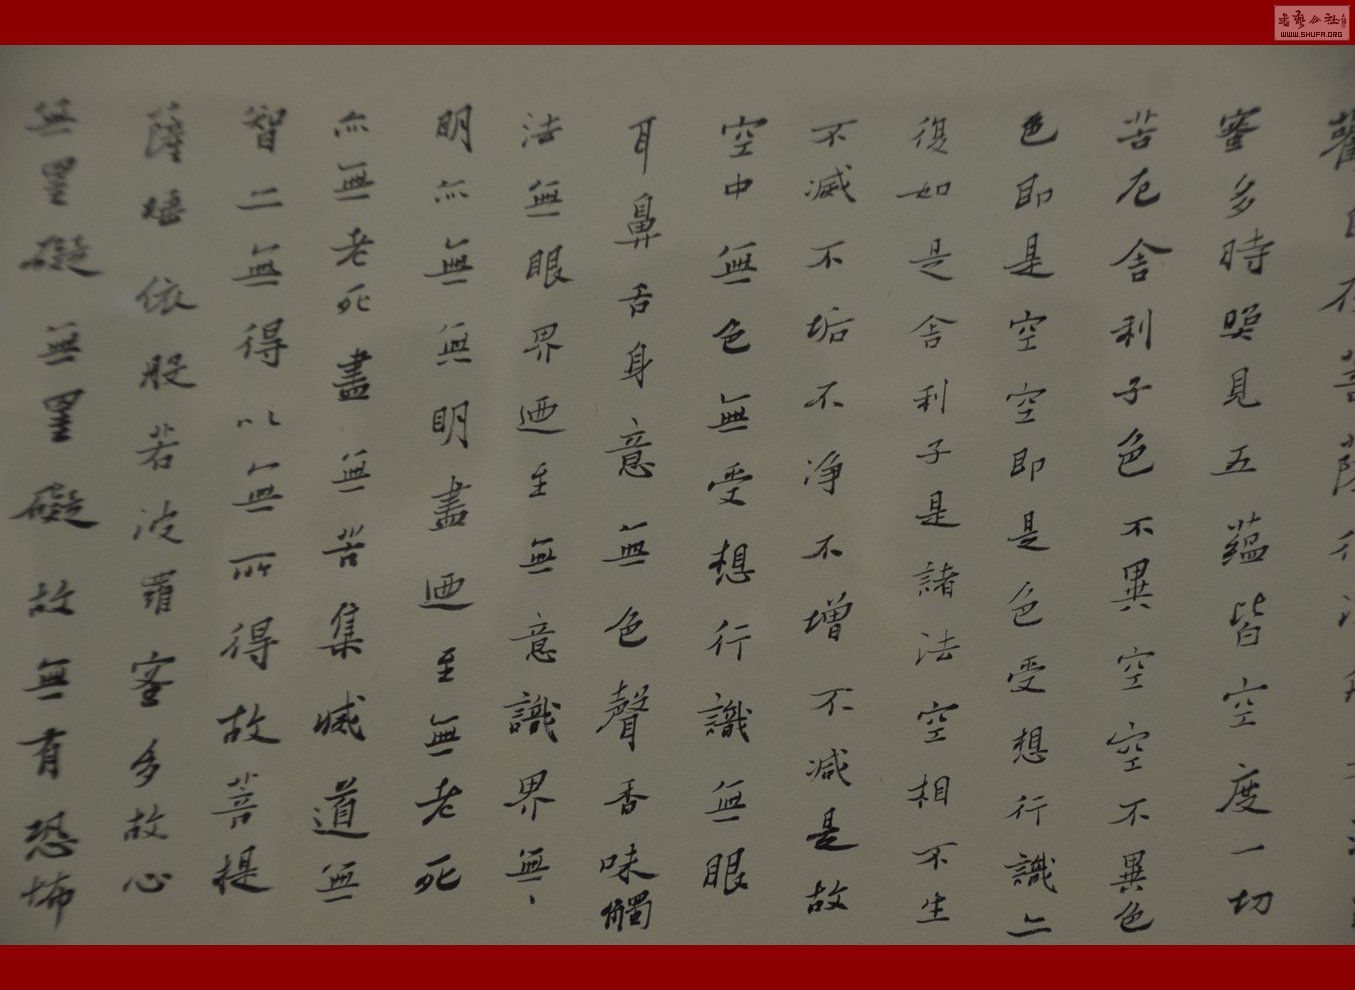 觀自在菩薩行深
蜜多時照見五蘊皆空度一切
苦厄舍利子色不異空空不異色
色即是空空即是色受想行識亦
復如是舍利子是諸法空相不生
不滅不垢不淨不增不減是故
空中無色無受想行識無眼
耳鼻舌身意無色聲香味觸
法無眼界迺至無意識界無
明亦無無明盡迺至無老死
亦無老死盡無苦集滅道無
智亦無得以無所得故菩提
薩埵依般若波羅蜜多故心
無罣礙無罣礙故無有恐怖
書藝公社
WWW.SHUFA.ORG